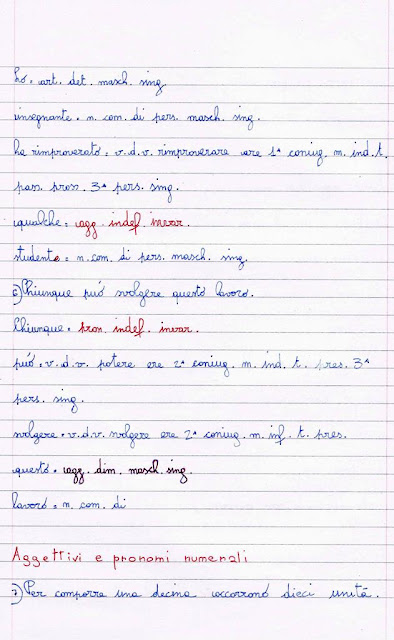 Lo = art. det. masch. sing.
insegnante = n. com. di pers. masch. sing.
ha rimproverato = v. d. v. rimproverare are 1ª coniug. m. ind. t.
pass. pross. 3ª pers. sing.
qualche = agg. indef. invar.
studente = n. com. di pers. masch. sing.
6) Chiunque può svolgere questo lavoro.
Chiunque = pron. indef. invar.
può = v. d. v. potere ere 2ª coniug. m. ind. t. pres. 3ª
pers. sing.
svolgere = v. d. v. svolgere ere 2ª coniug. m. inf. t. pres.
questo = agg. dim. masch. sing.
lavoro = n. com. di
Aggettivi e pronomi numerali
7) Per comporre una decina occorrono dieci unità.